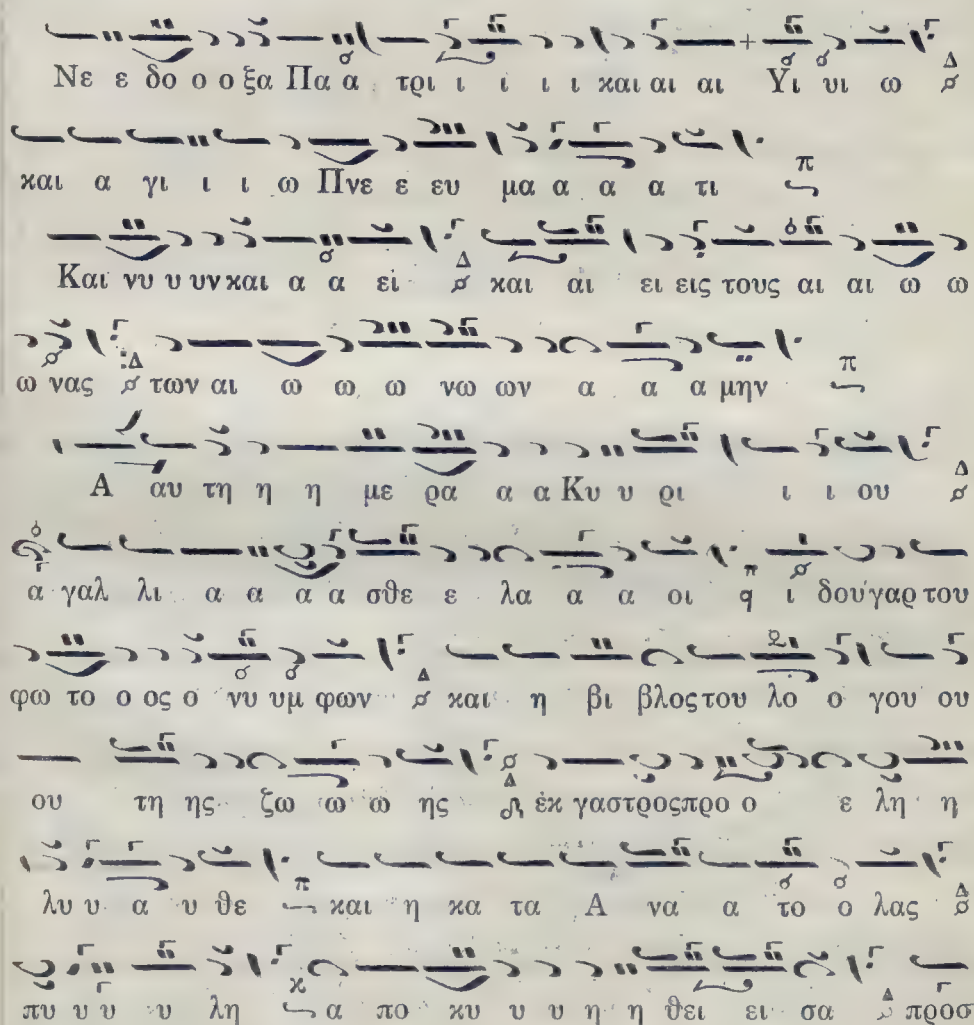 Νε ε δο ο ο ξα Πα α τρι ι ι ι ι και αι αι Υι υι ω Δ
και α γι ι ι ω Πνε ε ευ μα α α α τι π
Και νυ υ υν και α α ει Δ και αι ει εις τους αι αι ω ω
ω νας Δ των αι ω ω ω νω ων α α α μην π
Α αυ τη η η με ρα α α Κυ υ ρι ι ι ου Δ
α γαλ λι α α α α σθε ε λα α α οι π q ι δού γαρ του
φω το ο ος ο νυ υμ φων Δ και η βι βλος του λο ο γου ου
ου τη ης ζω ω ω ης Δ ἐκ γαστρος προ ο ε λη η
λυ υ α υ θε π και η κα τα Α να α το ο λας Δ
πυ υ υ υ λη κ α πο κυ υ υ η η θει ει σα Δ προσ